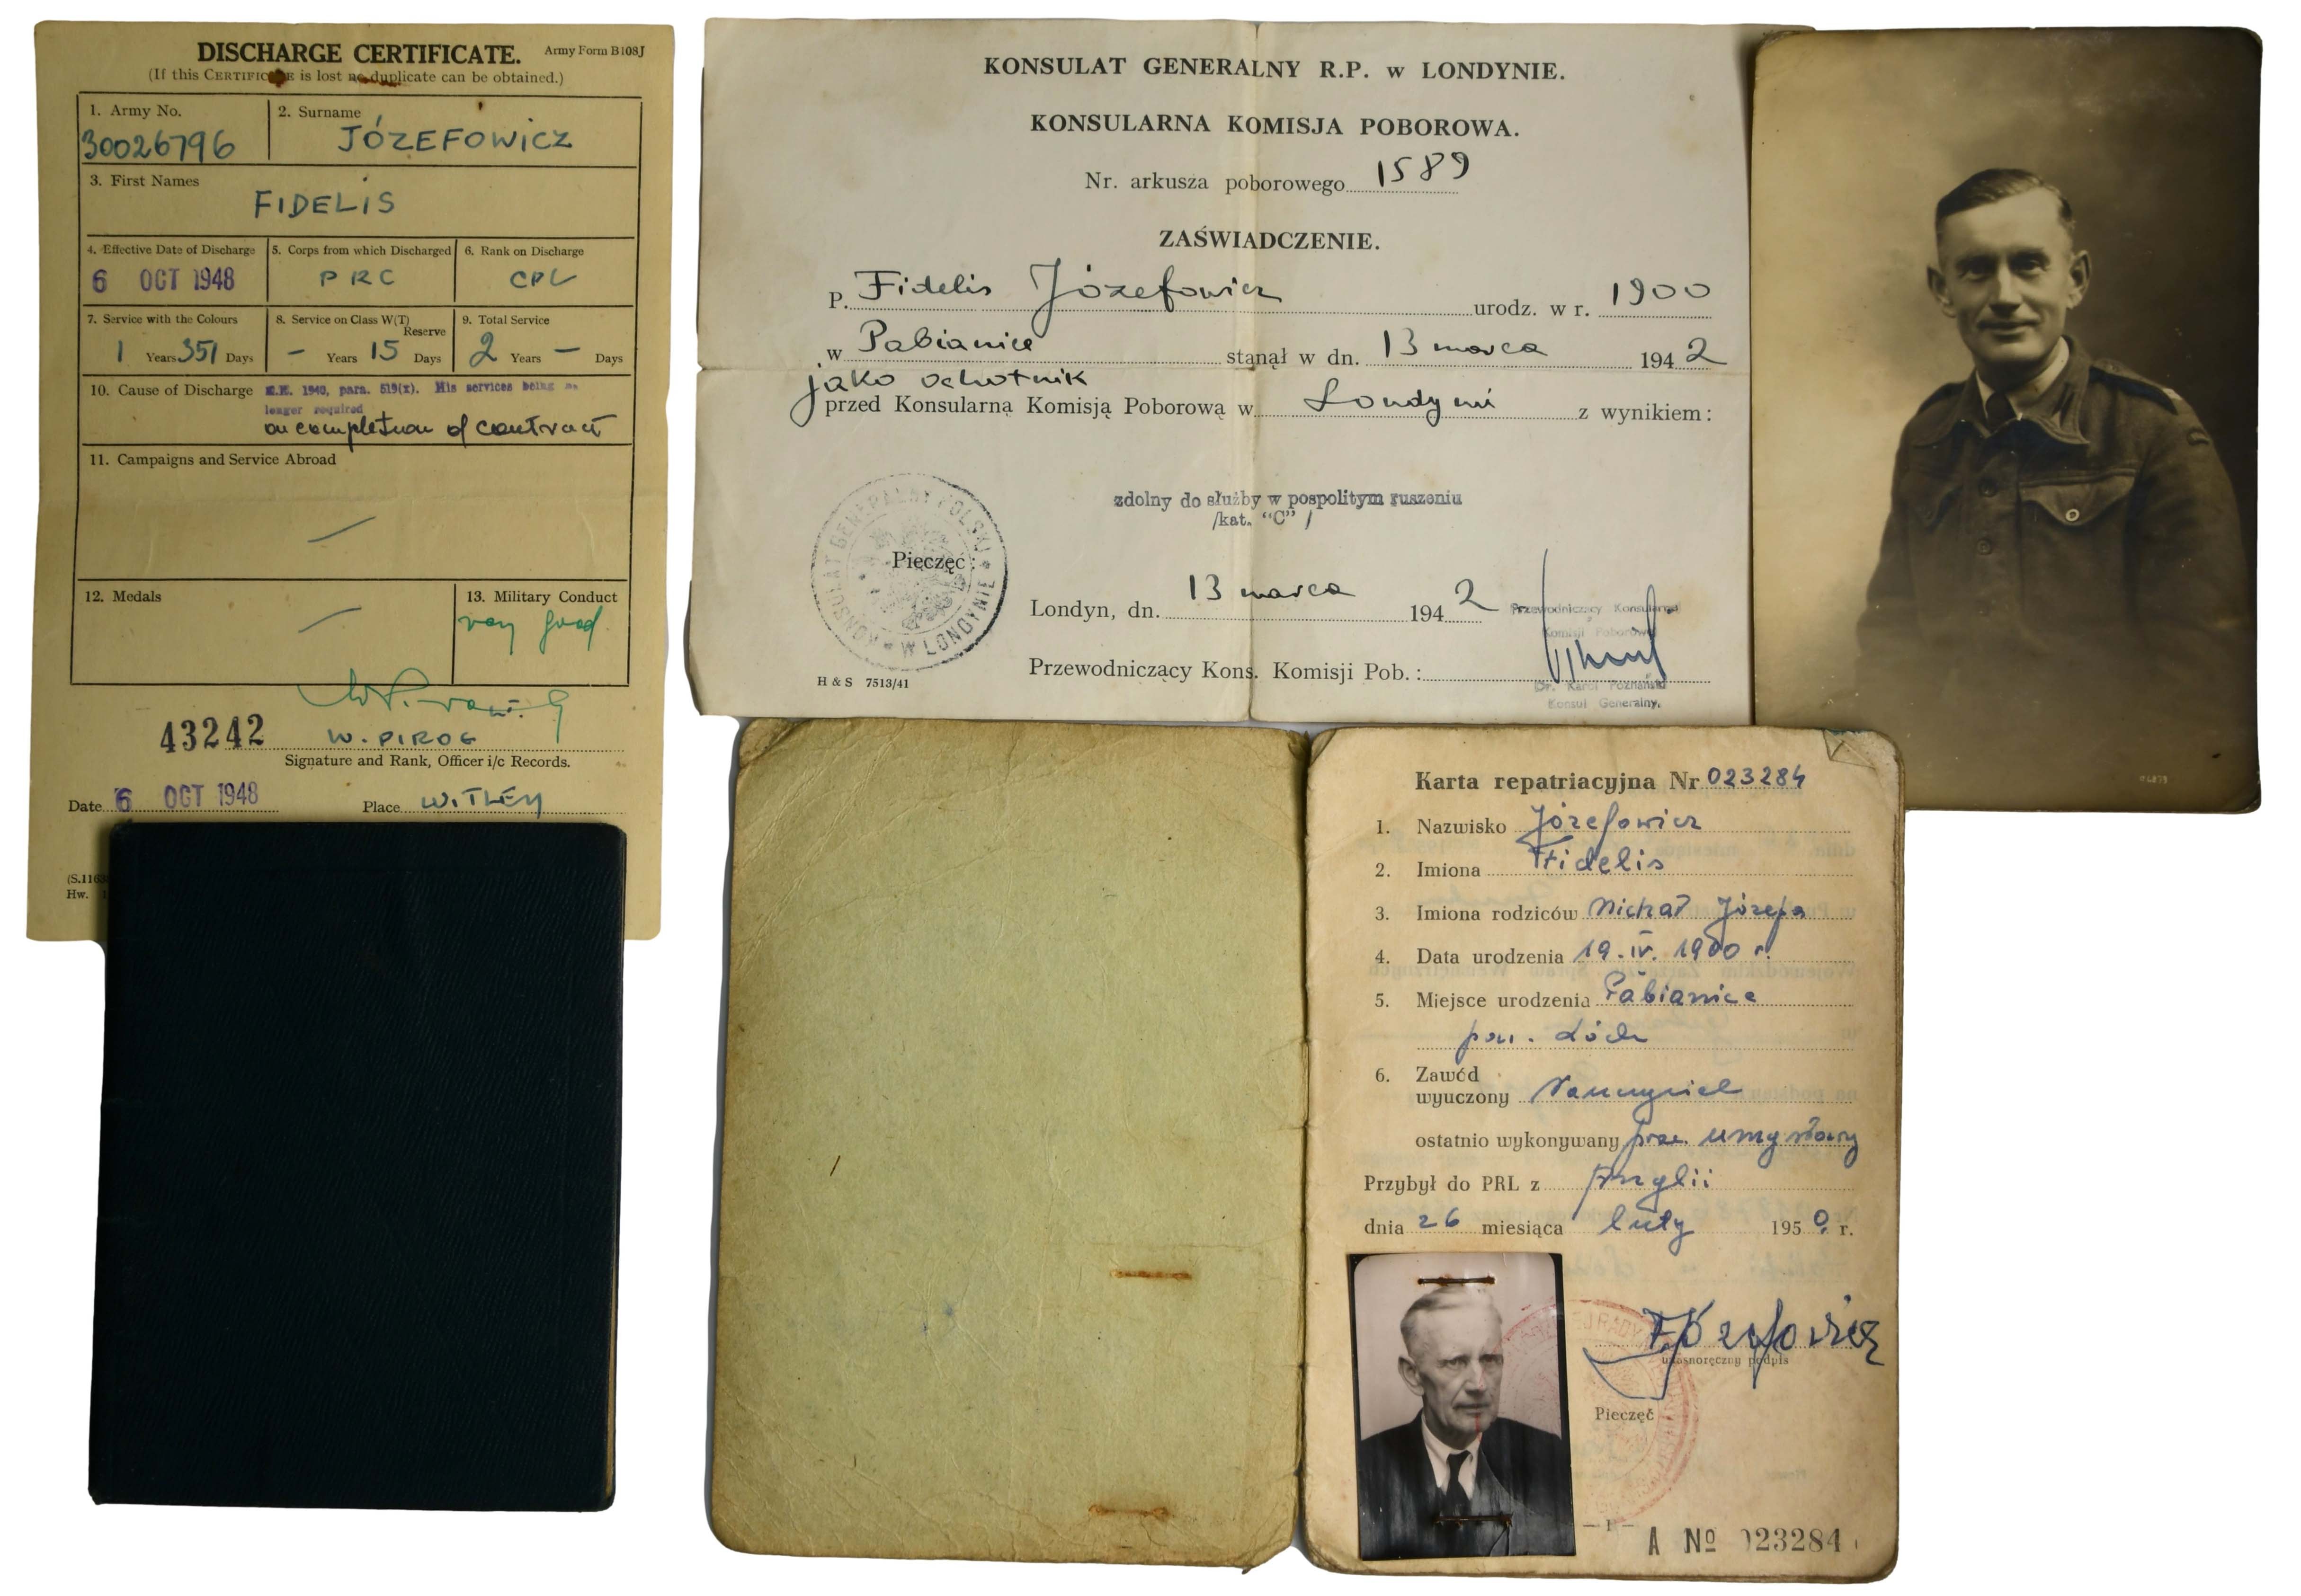 DISCHARGE CERTIFICATE. Army Form B108J
(If this CERTIFICATE is lost no duplicate can be obtained.)
1. Army No. 2. Surname
30026796 JÓZEFOWICZ
3. First Names
FIDELIS
4. Effective Date of Discharge 5. Corps from which Discharged 6. Rank on Discharge
6 OCT 1948 PRC CPL
7. Service with the Colours 8. Service on Class W(T) Reserve 9. Total Service
1 Years 351 Days – Years 15 Days 2 Years – Days
10. Cause of Discharge K.R. 1940, para. 519(x). His services being no
longer required
on completion of contract
11. Campaigns and Service Abroad
12. Medals 13. Military Conduct
very good
43242 W. PIROG
Signature and Rank, Officer i/c Records.
Date 6 OCT 1948 Place WITLEY
(S.1163
Hw.
KONSULAT GENERALNY R.P. w LONDYNIE.
KONSULARNA KOMISJA POBOROWA.
Nr. arkusza poborowego 1589
ZAŚWIADCZENIE.
P. Fidelis Józefowicz urodz. w r. 1900
w Pabianice stanął w dn. 13 marca 1942
jako ochotnik
przed Konsularną Komisją Poborową w Londynie z wynikiem:
zdolny do służby w pospolitym ruszeniu
/kat. "C" /
KONSULAT GENERALNY POLSKI W LONDYNIE
Pieczęć:
Londyn, dn. 13 marca 1942
Przewodniczący Konsularnej
Komisji Poborowej
Przewodniczący Kons. Komisji Pob.:
H & S 7513/41
Dr. Karol Poznański
Konsul Generalny.
Karta repatriacyjna Nr 023284
1. Nazwisko Józefowicz
2. Imiona Fidelis
3. Imiona rodziców Michał Józefa
4. Data urodzenia 19.IV.1900 r.
5. Miejsce urodzenia Pabianice
pow. Łódź
6. Zawód
wyuczony Nauczyciel
ostatnio wykonywany prac. umysłowy
Przybył do PRL z Anglii
dnia 26 miesiąca luty 1950 r.
F Józefowicz
własnoręczny podpis
Pieczęć
– 1 –
A № 023284